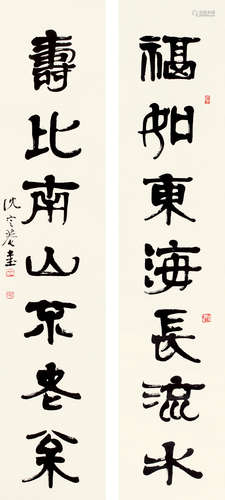 福如東海長流水
壽比南山不老枀
沈定庵書